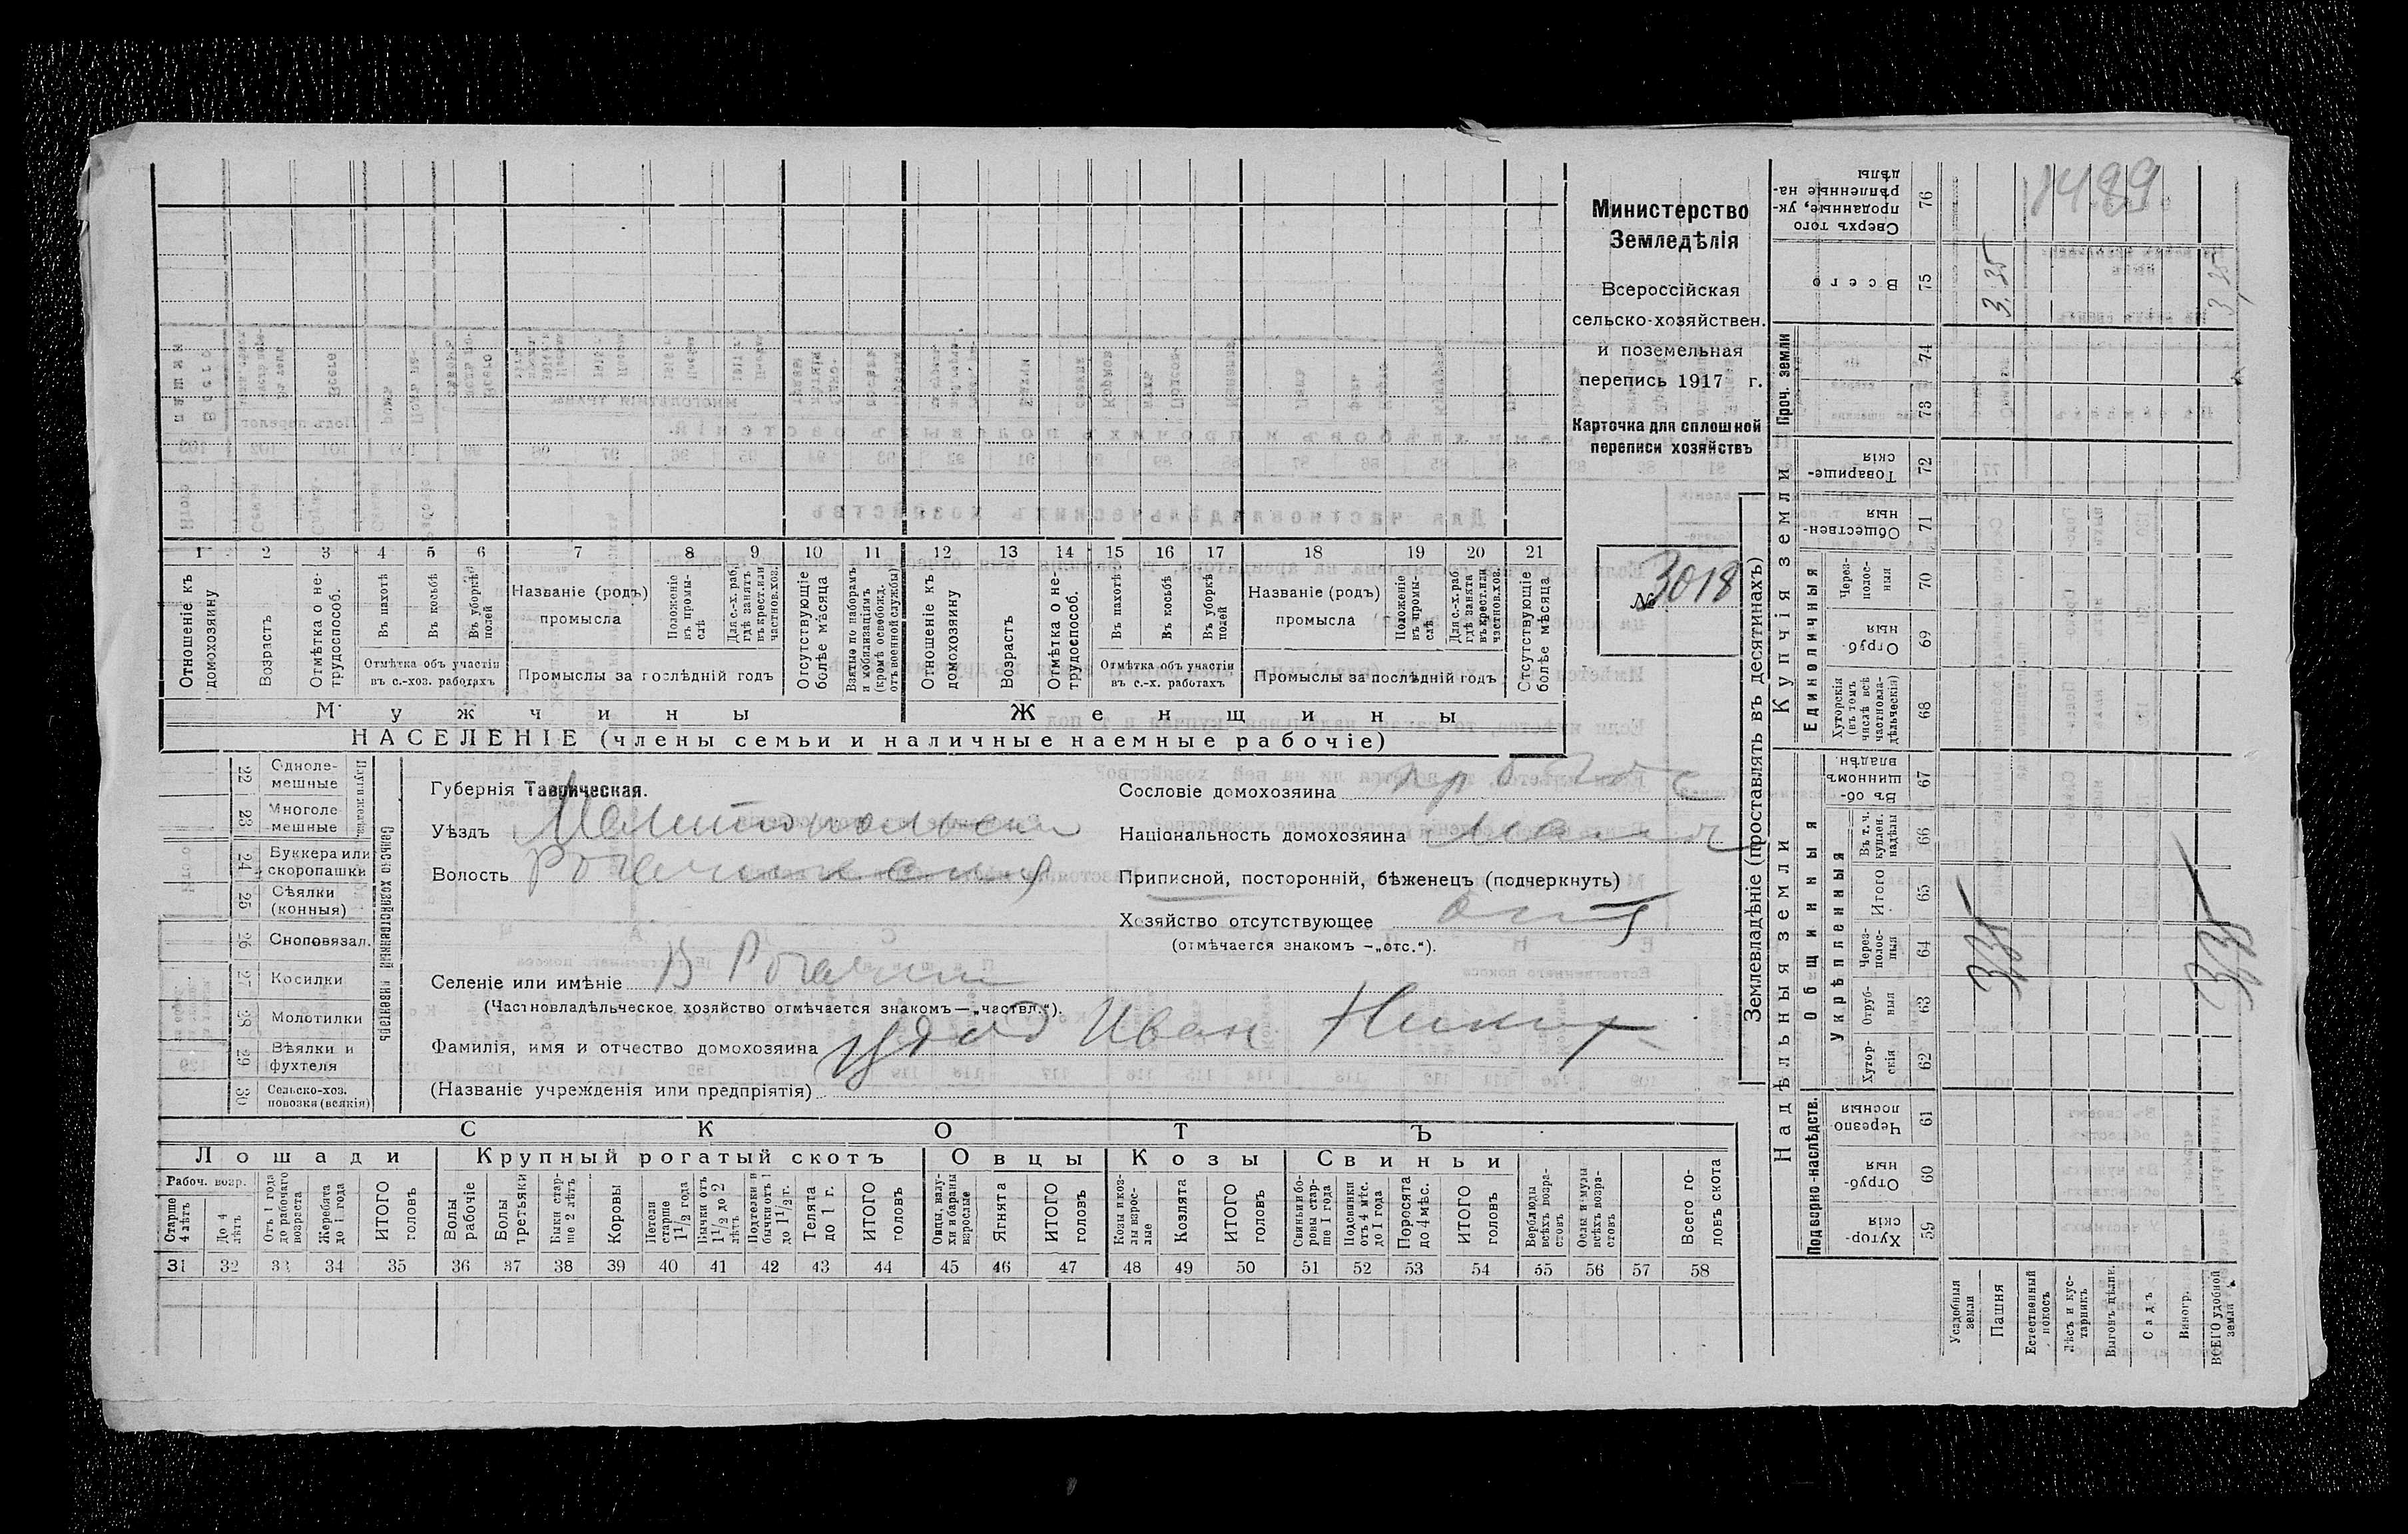 1489
Министерство
Земледѣлія
Всероссійская
сельско-хозяйствен.
и поземельная
перепись 1917 г.
Карточка для сплошной
переписи хозяйствъ
№ 3018
1 2 3 4 5 6 7 8 9 10 11 12 13 14 15 16 17 18 19 20 21
Отношеніе къ домохозяину
Возрастъ
Отмѣтка о не-трудоспособ.
Въ пахотѣ
Въ косьбѣ
Въ уборкѣ полей
Отмѣтка объ участіи
въ с.-хоз. работахъ
Названіе (родъ)
промысла
Положеніе въ промы-слѣ
Для с.-х. раб. гдѣ занятъ въ крест. или частнов. хоз.
Промыслы за послѣдній годъ
Отсутствующіе болѣе мѣсяца
Взятые по наборамъ и мобилизаціямъ (кромѣ освобожд. отъ военной службы)
Отношеніе къ домохозяину
Возрастъ
Отмѣтка о не-трудоспособ.
Въ пахотѣ
Въ косьбѣ
Въ уборкѣ полей
Отмѣтка объ участіи
въ с.-х. работахъ
Названіе (родъ)
промысла
Положеніе въ промы-слѣ
Для с.-х. раб. гдѣ занята въ крест. или частнов. хоз.
Промыслы за послѣдній годъ
Отсутствующіе болѣе мѣсяца
Мужчины
Женщины
НАСЕЛЕНІЕ (члены семьи и наличные наемные рабочіе)
22 Одноле-мешные
23 Многоле-мешные
24 Буккера или скоропашки
25 Сѣялки (конныя)
26 Сноповязал.
27 Косилки
28 Молотилки
29 Вѣялки и фухтеля
30 Сельско-хоз. повозки (всякія)
Сельско хозяйственный инвентарь
Губернія Таврическая.
Уѣздъ Мелитопольски
Волость Рогачикская
Селеніе или имѣніе В Рогачик
(Частновладѣльческое хозяйство отмѣчается знакомъ—„частвл.“).
Фамилія, имя и отчество домохозяина Иван Никит
(Названіе учрежденія или предпріятія)
Сословіе домохозяина
Національность домохозяина
Приписной, посторонній, бѣженецъ (подчеркнуть)
Хозяйство отсутствующее отс
(отмѣчается знакомъ —„отс.“).
СКОТЪ
Лошади
Крупный рогатый скотъ
Овцы
Козы
Свиньи
Рабоч. возр.
Старше 4 лѣтъ
До 4 лѣтъ
Отъ 1 года до рабочаго возраста
Жеребята до 1 года
ИТОГО головъ
Волы рабочіе
Волы третьяки
Быки стар-ше 2 лѣтъ
Коровы
Нетели старше 1 1/2 года
Бычки отъ 1 1/2 до 2 лѣтъ
Подтелки и бычки отъ 1 до 1 1/2 г.
Телята до 1 г.
ИТОГО головъ
Овцы, валу-хи и бараны взрослые
Ягнята
ИТОГО головъ
Козы и коз-лы взрос-лые
Козлята
ИТОГО головъ
Свиньи и бо-ровы стар-ше 1 года
Подсвинки отъ 4 мѣс. до 1 года
Поросята до 4 мѣс.
ИТОГО головъ
Верблюды всѣхъ возра-стовъ
Ослы и мулы всѣхъ возра-стовъ
Всего го-ловъ скота
31 32 33 34 35 36 37 38 39 40 41 42 43 44 45 46 47 48 49 50 51 52 53 54 55 56 57 58
Землевладѣніе (проставлять въ десятинахъ)
Надѣльныя земли
Купчія земли
Проч. земли
Подворно-наслѣдств.
Общинныя
Укрѣпленныя
Единоличныя
Хутор-скія 59
Отруб-ныя 60
Черезпо лосныя 61
Хутор-скія 62
Отруб-ныя 63
Через-полос-ныя 64
Итого 65
Въ т. ч. куплен. надѣлы 66
Въ об-щинномъ владѣн. 67
Хуторскія (въ томъ числѣ всѣ частновла-дѣльческія) 68
Отруб-ныя 69
Через-полос-ныя 70
Обществен-ныя 71
Товарище-скія 72
73
74
Всего 75
Сверхъ того проданные, ук-рѣпленные на-дѣлы 76
Усадебныя земли
Пашня 3.25
Естественный покосъ
Лѣсъ и кус-тарникъ
Выгонъ цѣлин.
Садъ
Виногр.
ВСЕГО удобной земли 3,25